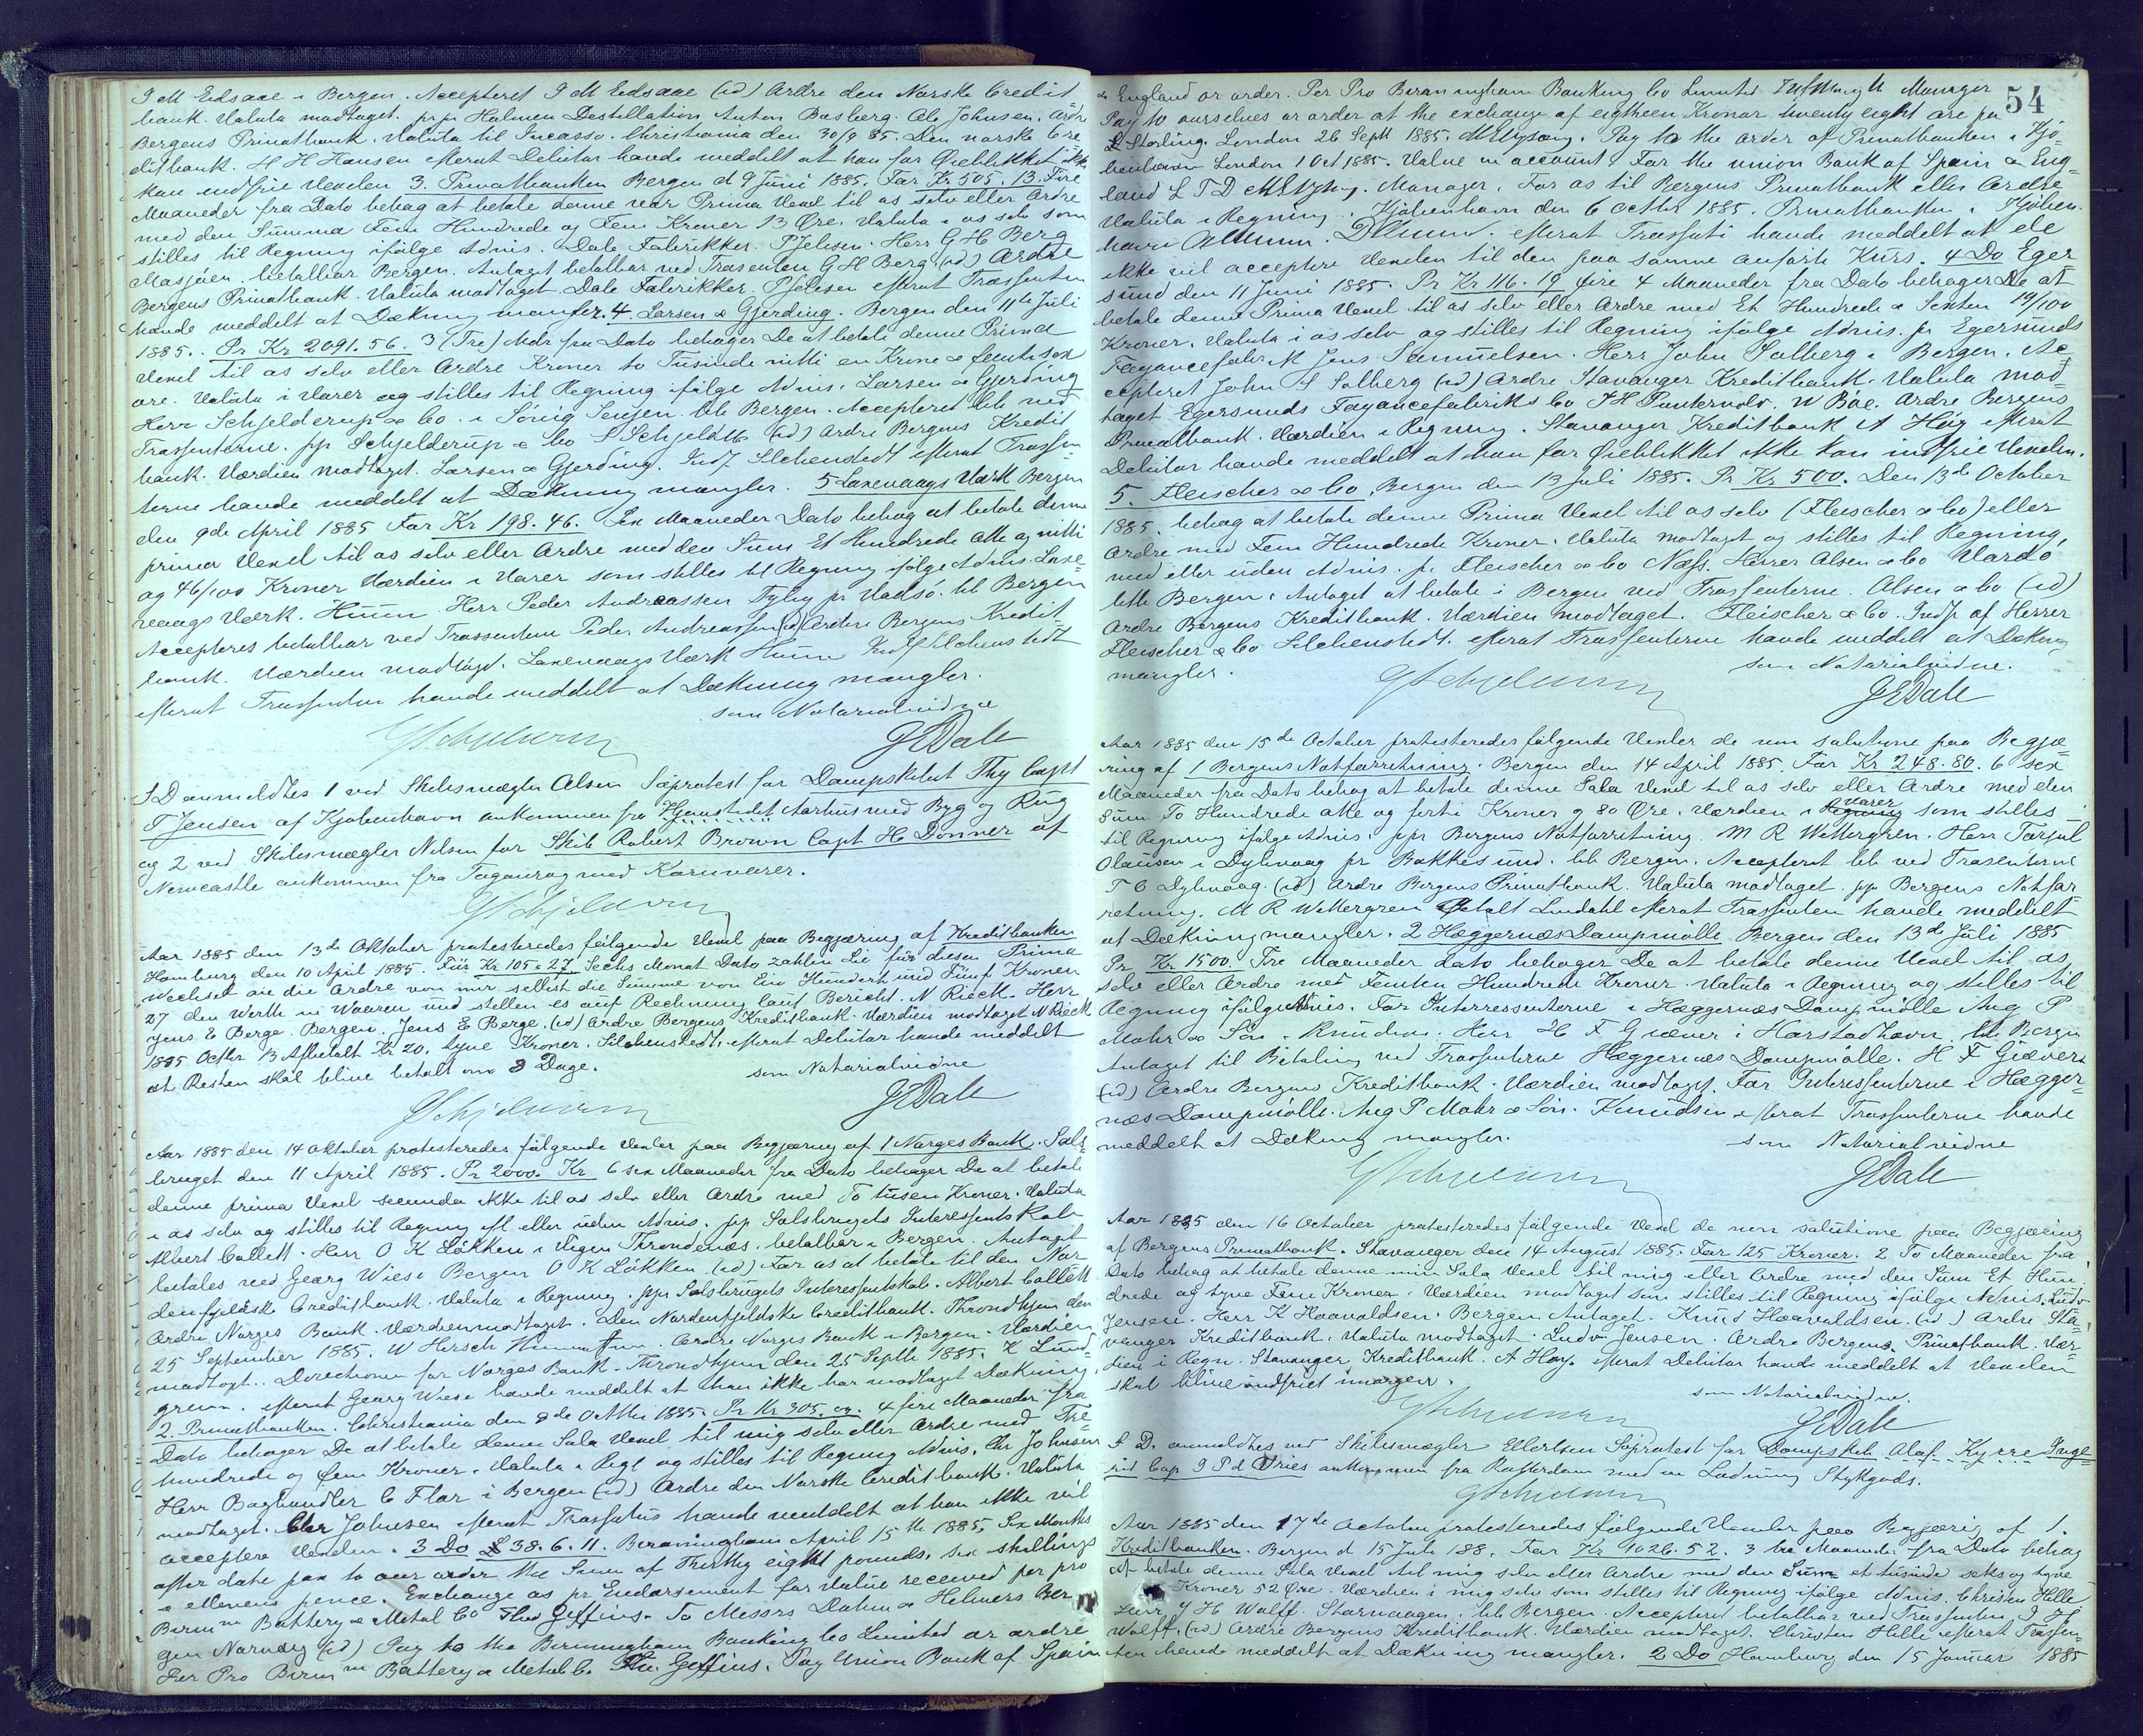 I M Eidsaae i Bergen. Accepteret I M Eidsaae (id) Ordre den Norske Credit
bank. Valuta modtaget. pr pr Holmen Destillation Anton Basberg. Ole Johnsen. Ordre
Bergens Privatbank. Valuta til Incasso. Christiania den 30/9 85. Den norske Cre
ditbank. H H Hansen efterat Debitor havde meddelt at han for Øieblikket ikke
kan indfrie Vexelen 3. Privatbanken Bergen d 9 Juni 1885. For Kr 505. 13. Fire
Maaneder fra Dato behag at betale denne vor Prima Vexel til os selv eller Ordre
med den Summa Fem Hundrede og Fem Kroner 13 Øre. Valuta i os selv som
stilles til Regning ifølge Advis. Dale Fabrikker. P Jebsen. Herr G H Berg
Mosjøen. betalbar Bergen. Antaget betalbar ved Trasenten G H Berg (id) Ordre
Bergens Privatbank. Valuta modtaget Dale Fabrikker. P Jebsen efterat Trassenten
havde meddelt at Dækning mangler. 4. Larsen & Gjerding. Bergen den 11te Juli
1885. Pr Kr 2091. 56. 3 (Tre) Mdr fra Dato behager De at betale denne Prima
Vexel til os selv eller Ordre Kroner to Tusinde nitti en Krone & femtisex
øre. Valuta i Varer og stilles til Regning ifølge Advis. Larsen & Gjerding
Herr Schjelderup & Co i Sörvig Senjen. btb Bergen. Accepteret btb ved
Trassenterne. pp Schjelderup & Co S Schjeldth (id) Ordre Bergens Kredit
bank. Værdien modtaget. Larsen & Gjerding. Indf Silchenstedt efterat Trassen
terne havde meddelt at Dækning mangler. 5 Laxevaags Værk Bergen
den 9de April 1885 For Kr 198. 46. Sex Maaneder Dato behag at betale denne
prima Vexel til os selv eller Ordre med den Sum Et Hundrede otte og nitti
og 46/100 Kroner Værdien i Varer som stilles til Regning ifølge Advis. Laxe
vaags Værk. Huun. Herr Peder Andreassen Tyby pr Vadsö. btb Bergen
Accepteres betalbar ved Trassenterne Peder Andreassen (id) Ordre Bergens Kredit
bank. Værdien modtaget. Laxevaags Værk Huun Indf Silchenstedt
efterat Trassenten havde meddelt at Dækning mangler.
som Notarialvidne
G E Dale
S D anmeldtes 1 ved Skibsmægler Olsen Søprotest for Dampskibet Thy Capt
T Jensen af Kjøbenhavn ankommen fra Hjemstedet Aarhus med Byg og Rug
og 2 ved Skibsmægler Nilsen for Skib Robert Brown Capt H Donner af
Newcastle ankommen fra Taganrog med Kornvarer.
Aar 1885 den 13de Oktober protesteredes følgende Vexel paa Begjæring af Kreditbanken
Hamburg den 10 April 1885. Für Kr 105. 27 Sechs Monat Dato zahlen Sie für diesen Prima
Wechsel an die Ordre von mir selbst die Summe von Ein Hundert und Fünf Kronen
27 den Werth in Waaren und stellen es auf Rechnung laut Bericht. N Rieck. Herr
Jens E Berge. Bergen. Jens E Berge. (id) Ordre Bergens Kreditbank. Værdien modtaget N Rieck
1885 Octbr 13 Afbetalt Kr 20. tyve Kroner. Silchenstedt. efterat Debitor havde meddelt
at Resten skal blive betalt om 3 Dage.
som Notarialvidne
G E Dale
Aar 1885 den 14 Oktober protesteredes følgende Vexler paa Begjæring af 1 Norges Bank. Sals
bruget den 11 April 1885. Pr 2000. Kr 6 sex Maaneder fra Dato behager De at betale
denne prima Vexel secunda ikke til os selv eller Ordre med To tusen Kroner. Valuta
i os selv og stilles til Regning eft eller uden Advis. pp Salsbrugets Interessentskab
Albert Collett. Herr O K Løkken i Vigen Throndenæs. betalbar i Bergen. Antaget
betales ved Georg Wiese Bergen O K Løkken (id) For os at betale til den Nor
denfjeldske Creditbank. Valuta i Regning. pp Salsbrugets Interessentskab. Albert Collett
Ordre Norges Bank. Værdien modtaget. Den Nordenfjeldske Creditbank. Throndhjem den
25 September 1885. W Hirsch. Ordre Norges Bank i Bergen. Værdien
modtagt. Direktionen for Norges Bank. Throndhjem den 25 Septbr 1885. K Lund
green. efterat Georg Wiese havde meddelt at han ikke har modtaget Dækning.
2. Privatbanken. Christiania den 8de Octbr 1885. Pr Kr 305. og. 4 fire Maaneder fra
Dato behager De at betale denne Sola Vexel til mig selv eller Ordre med Tre
hundrede og fem Kroner. Valuta i Regg og stilles til Regning Advis. Chr Johnsen
Herr Boghandler C Flor i Bergen (id) Ordre den Norske Creditbank. Valuta
modtaget. Chr Johnsen efterat Trassatus havde meddelt at han ikke vil
acceptere Vexelen. 3 Do £ 38. 6. 11. Birmingham April 15th 1885. Six Months
after date pay to our order the Sum of Thirthy eight pounds, six shillings
& ellevens pence. Exchange as pr Endorsement for Value received per pro
Birmm Battery & Metal Co Thos Geffins. To Messrs Dahm & Helmers Ber
gen Norway (id) Pay to the Birmingham Banking Co Limited or ordre
Per Pro Birmm Battery & Metal Co. Tho. Geffins. Pay Union Bank of Spain
54
& England or order. Per Pro Birmingham Banking Co Limited Manager
Pay to ourselves or order at the exchange of eigtheen Kronor twenty eight øre per
£ Sterling. London 26 Septt 1885. Pay to the order of Privatbanken i Kjø
benhavn London 1 Oct 1885. Value in account For the union Bank of Spain & Eng
land L T D Manager. For os til Bergens Privatbank eller Ordre
Valuta i Regning. Kjøbenhavn den 6 Octbr 1885. Privatbanken i Kjøben
havn. efterat Trassati havde meddelt at de
ikke vil acceptere Vexelen til den paa samme anførte Kurs. 4 Do Eger
sund den 11 Juni 1885. Pr Kr 116. 19 fire 4 Maaneder fra Dato behager De at
betale denne Prima Vexel til os selv eller Ordre med Et Hundrede & Sexten 19/100
Kroner. Valuta i os selv og stilles til Regning ifølge Advis. pr Egersunds
Fayancefabrik Jens Samuelsen. Herr John Solberg i Bergen. Ac
cepteret John S Solberg (id) Ordre Stavanger Kreditbank. Valuta mod
taget Egersunds Fayancefabriks Co J H Puntervold. W Böe. Ordre Bergens
Privatbank. Værdien i Regning. Stavanger Kreditbank A Høy efterat
Debitor havde meddelt at han for Øieblikket ikke kan indfrie Vexelen.
5. Fleischer & Co. Bergen den 13 Juli 1885. Pr Kr 500. Den 13de October
1885. behag at betale denne Prima Vexel til os selv (Fleischer & Co) eller
Ordre med Fem Hundrede Kroner. Valuta modtaget og stilles til Regning,
med eller uden Advis. pr Fleischer & Co Næss. Herrer Olsen & Co Vardö
btb Bergen. Antaget at betale i Bergen ved Trassenterne. Olsen & Co (id)
Ordre Bergens Kreditbank. Værdien modtaget. Fleischer & Co. Indf af Herrer
Fleischer & Co Silchenstedt. efterat Trassenterne havde meddelt at Dækning
mangler.
som Notarialvidne.
G E Dale
Aar 1885 den 15de October protesteredes følgende Vexler de non solutione paa Begjæ
ring af 1 Bergens Notforretning. Bergen den 14 April 1885. For Kr 248. 80. 6 sex
Maaneder fra Dato behag at betale denne Sola Vexel til os selv eller Ordre med den
Sum To Hundrede otte og forti Kroner og 80 Øre. Værdien i Regning Varer som stilles
til Regning ifølge Advis. pp Bergens Notforretning. M R Wettergren. Herr Torjul
Olausen i Dybvaag pr Bakkesund. btb Bergen. Accepteret btb ved Trasenterne
T O Dybvaag. (id) Ordre Bergens Privatbank. Valuta modtaget. pp Bergens Notfor
retning. M R Wettergren Betalt Lindahl efterat Trassenten havde meddelt
at Dækning mangler. 2 Hæggernæs Dampmølle Bergen den 13de Juli 1885
Pr Kr 1500. Tre Maaneder dato behager De at betale denne Vexel til os
selv eller Ordre med Femten Hundrede Kroner. Valuta i Regning og stilles til
Regning ifølge Advis. For Interressenterne i Hæggernæs Dampmølle Aug P
Mohr & Søn. Knudsen. Herr H F Giæver i Harstadhavn, btb Bergen
Antaget til Betaling ved Trassenterne Hæggernæs Dampmølle. H F Giæver
(id) Ordre Bergens Kreditbank. Værdien modtaget. For Interessenterne i Hægger
næs Dampmølle. Aug P Mohr & Søn. Knudsen efterat Trassenterne havde
meddelt at Dækning mangler.
som Notarialvidne
G E Dale
Aar 1885 den 16 October protesteredes følgende Vexel de non solutione paa Begjæring
af Bergens Privatbank. Stavanger den 14 August 1885. For 125 Kroner. 2 To Maaneder fra
Dato behag at betale denne min Sola Vexel til mig eller Ordre med den Sum Et Hun
drede og tyve Fem Kroner. Værdien modtaget som stilles til Regning ifølge Advis. Ludv
Jensen. Herr K Haavaldsen. Bergen. Antaget. Knud Haavaldsen. (id) Ordre Sta
vanger Kreditbank. Valuta modtaget. Ludv Jensen. Ordre Bergens Privatbank. Vær
dien i Regn. Stavanger Kreditbank. A Høy. efterat Debitor havde meddelt at Vexelen
skal blive indfriet imorgen.
som Notarialvidne.
G E Dale
S D. anmeldtes ved Skibsmægler Ellertsen Søprotest for Dampskib Olaf Kyrre Inge
rid Cap J P d Vries ankommen fra Rotterdam med en Ladning Stykgods.
Aar 1885 den 17de October protesteredes følgende Vexler paa Begjæring af 1.
Kreditbanken. Bergen d 15 Juli 188. For Kr 1026. 52. 3 tre Maaneder fra Dato behag
at betale denne Sola Vexel til mig selv eller Ordre med den Sum et tusinde seks og tyve
Kroner 52 Øre. Værdien i mig selv som stilles til Regning ifølge Advis. Christen Hille
Herr J H Wolff. Skorvaagen. btb Bergen. Accepteret betalbar ved Trassenten J H
Wolff. (id) Ordre Bergens Kreditbank. Værdien modtaget. Christen Hille efterat Trassen
ten havde meddelt at Dækning mangler. 2 Do Hamburg den 15 Januar 1885